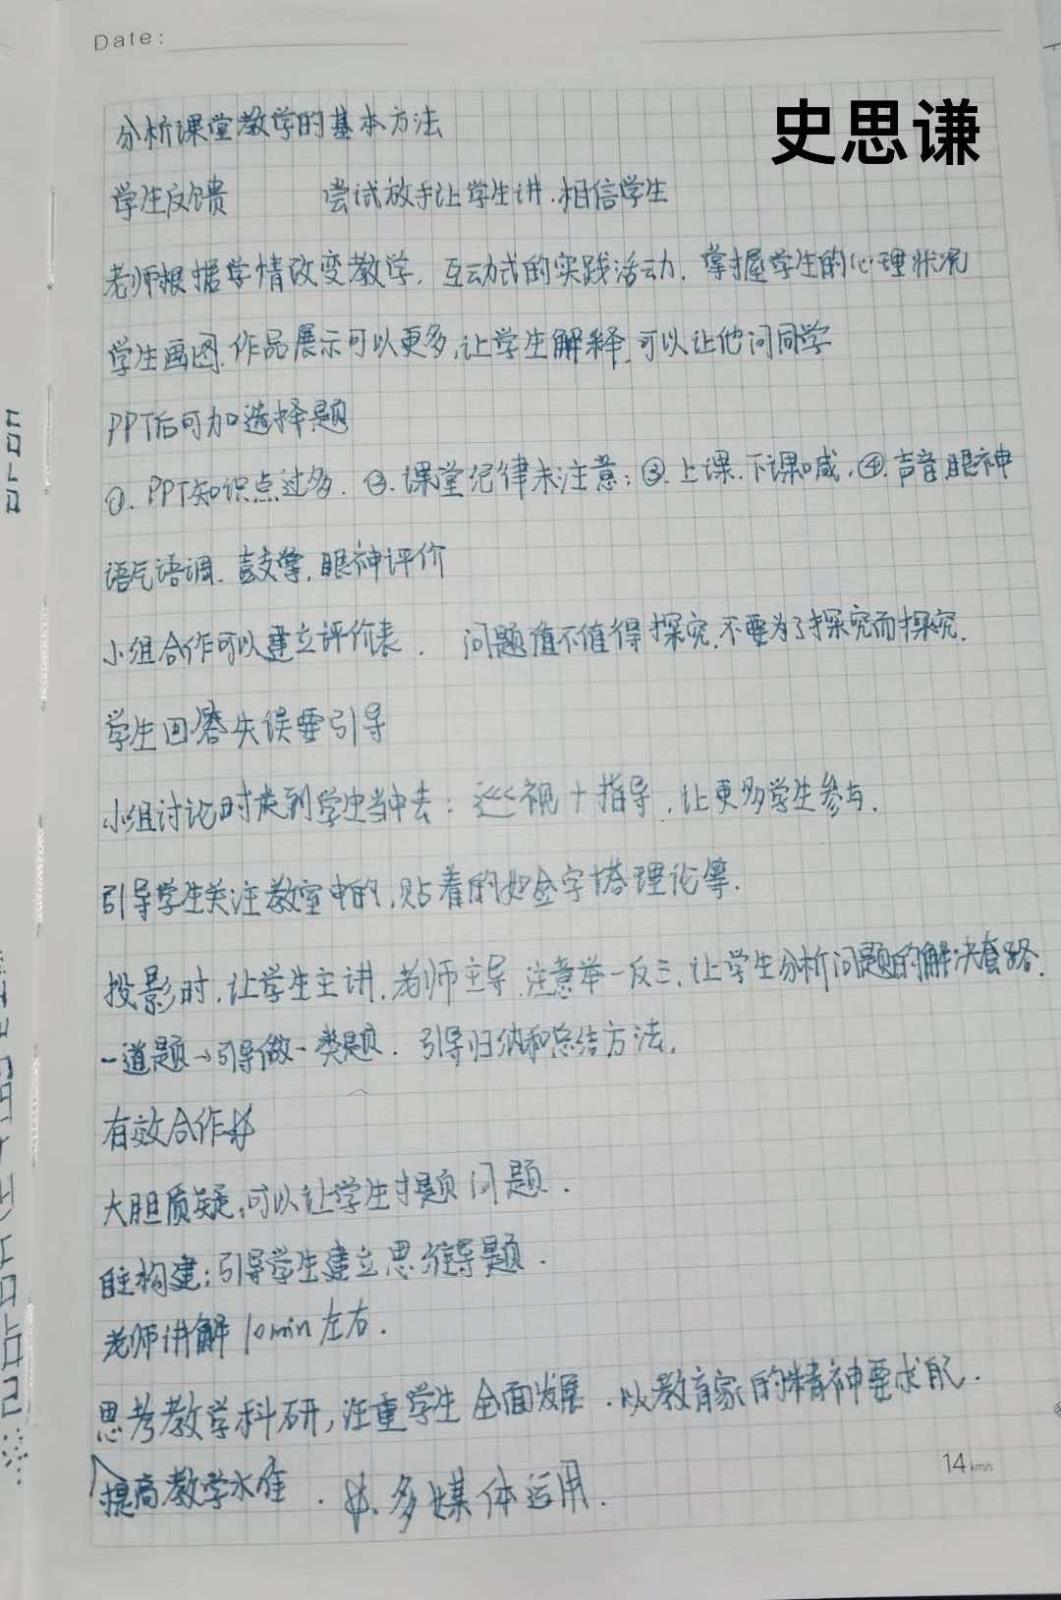 Date:
史思谦
分析课堂教学的基本方法
学生反馈 尝试放手让学生讲.相信学生
老师根据学情改变教学,互动式的实践活动.掌握学生的心理状况
学生画图.作品展示可以更多,让学生解释,可以让他问同学
PPT后可加选择题
①.PPT知识点过多.②.课堂纪律未注意;③.上课.下课喊.④.声音眼神
语气语调.鼓掌,眼神评价
小组合作可以建立评价表. 问题值不值得探究.不要为了探究而探究.
学生回答失误要引导
小组讨论时走到学生当中去:巡视+指导,让更多学生参与.
引导学生关注教室中的,贴着的如金字塔理论等.
投影时,让学生主讲.老师主导.注意举一反三,让学生分析问题的解决套路.
一道题→引导做一类题.引导归纳和总结方法.
有效合作
大胆质疑;可以让学生提问题.
自主构建;引导学生建立思维导题.
老师讲解10min左右.
思考教学科研,注重学生全面发展.以教育家的精神要求自己.
提高教学水准.多媒体运用.
14